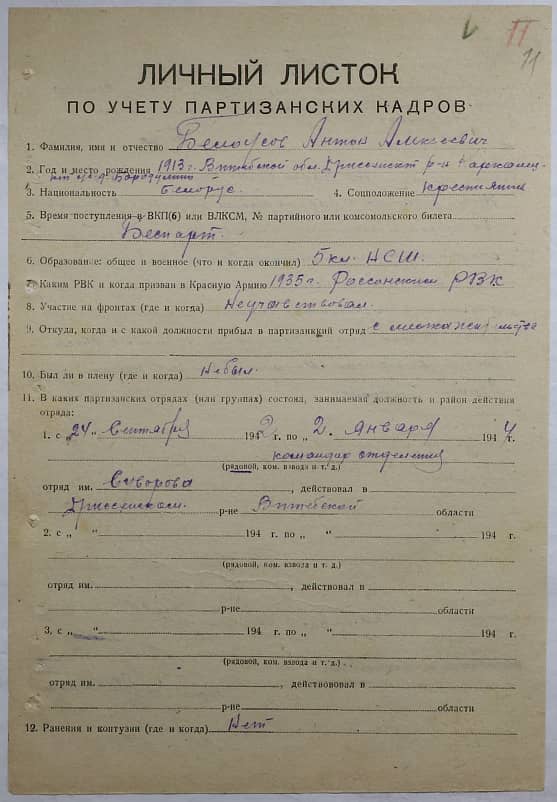 11
11
ЛИЧНЫЙ ЛИСТОК
ПО УЧЕТУ ПАРТИЗАНСКИХ КАДРОВ
1. Фамилия, имя и отчество Белоусов Антон Алксеевич
2. Год и место рождения 1913г. Витебской обл. Дрисенский р-н
с/с д. Бородулино
3. Национальность Белорус. 4. Соцположение Крестьянин
5. Время поступления в ВКП(б) или ВЛКСМ, № партийного или комсомольского билета
Беспарт.
6. Образование: общее и военное (что и когда окончил) 5 кл. НСШ.
7. Каким РВК и когда призван в Красную Армию 1935г. Россонским РВК
8. Участие на фронтах (где и когда) Неучавствовал.
9. Откуда, когда и с какой должности прибыл в партизанский отряд с местажительства
10. Был ли в плену (где и когда) Небыл.
11. В каких партизанских отрядах (или группах) состоял, занимаемая должность и район действия
отряда:
1. с „24“ Сентября 1942 г. по „2“ января 1944 г.
командир отделения
(рядовой, ком. взвода и т. д.)
отряд им. Суворова, действовал в
Дрисенском р-не Витебской области
2. с „ “ 194 г. по „ “ 194 г.
(рядовой, ком. взвода и т. д.)
отряд им. , действовал в
р-не области
3. с „ “ 194 г. по „ “ 194 г.
(рядовой, ком. взвода и т. д.)
отряд им. , действововал в
р-не области
12. Ранения и контузии (где и когда) Нет